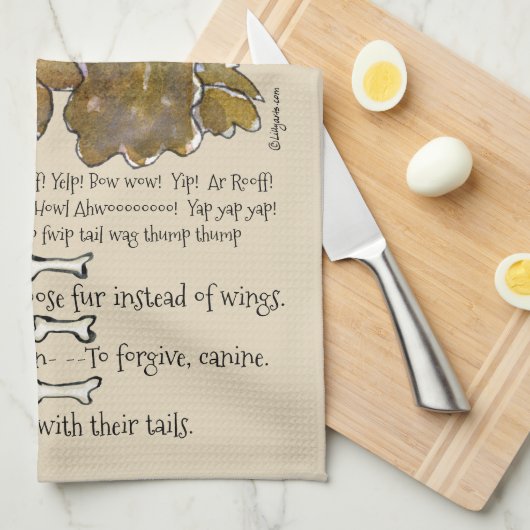 ©Lillyarts.com
f! Yelp! Bow wow! Yip! Ar Rooff!
Howl Ahwoooooooo! Yap yap yap!
fwip tail wag thump thump
ose fur instead of wings.
n- - -To forgive, canine.
with their tails.